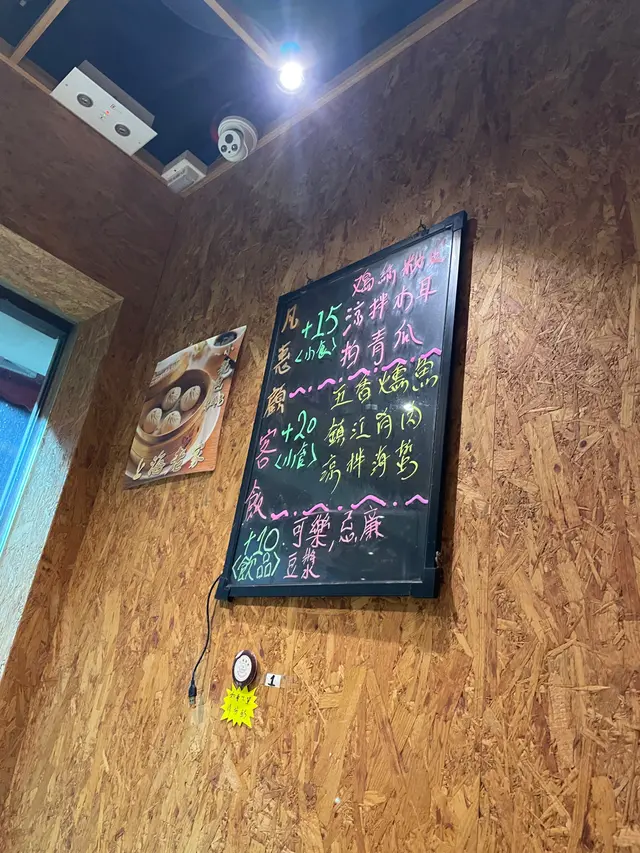 凡惠顧客飯
+15
<小食>
涼拌木耳
拍青瓜
+20
<小食>
五香燻魚
鎮江肴肉
涼拌海蜇
+10
<飲品>
可樂,忌廉
豆漿
1